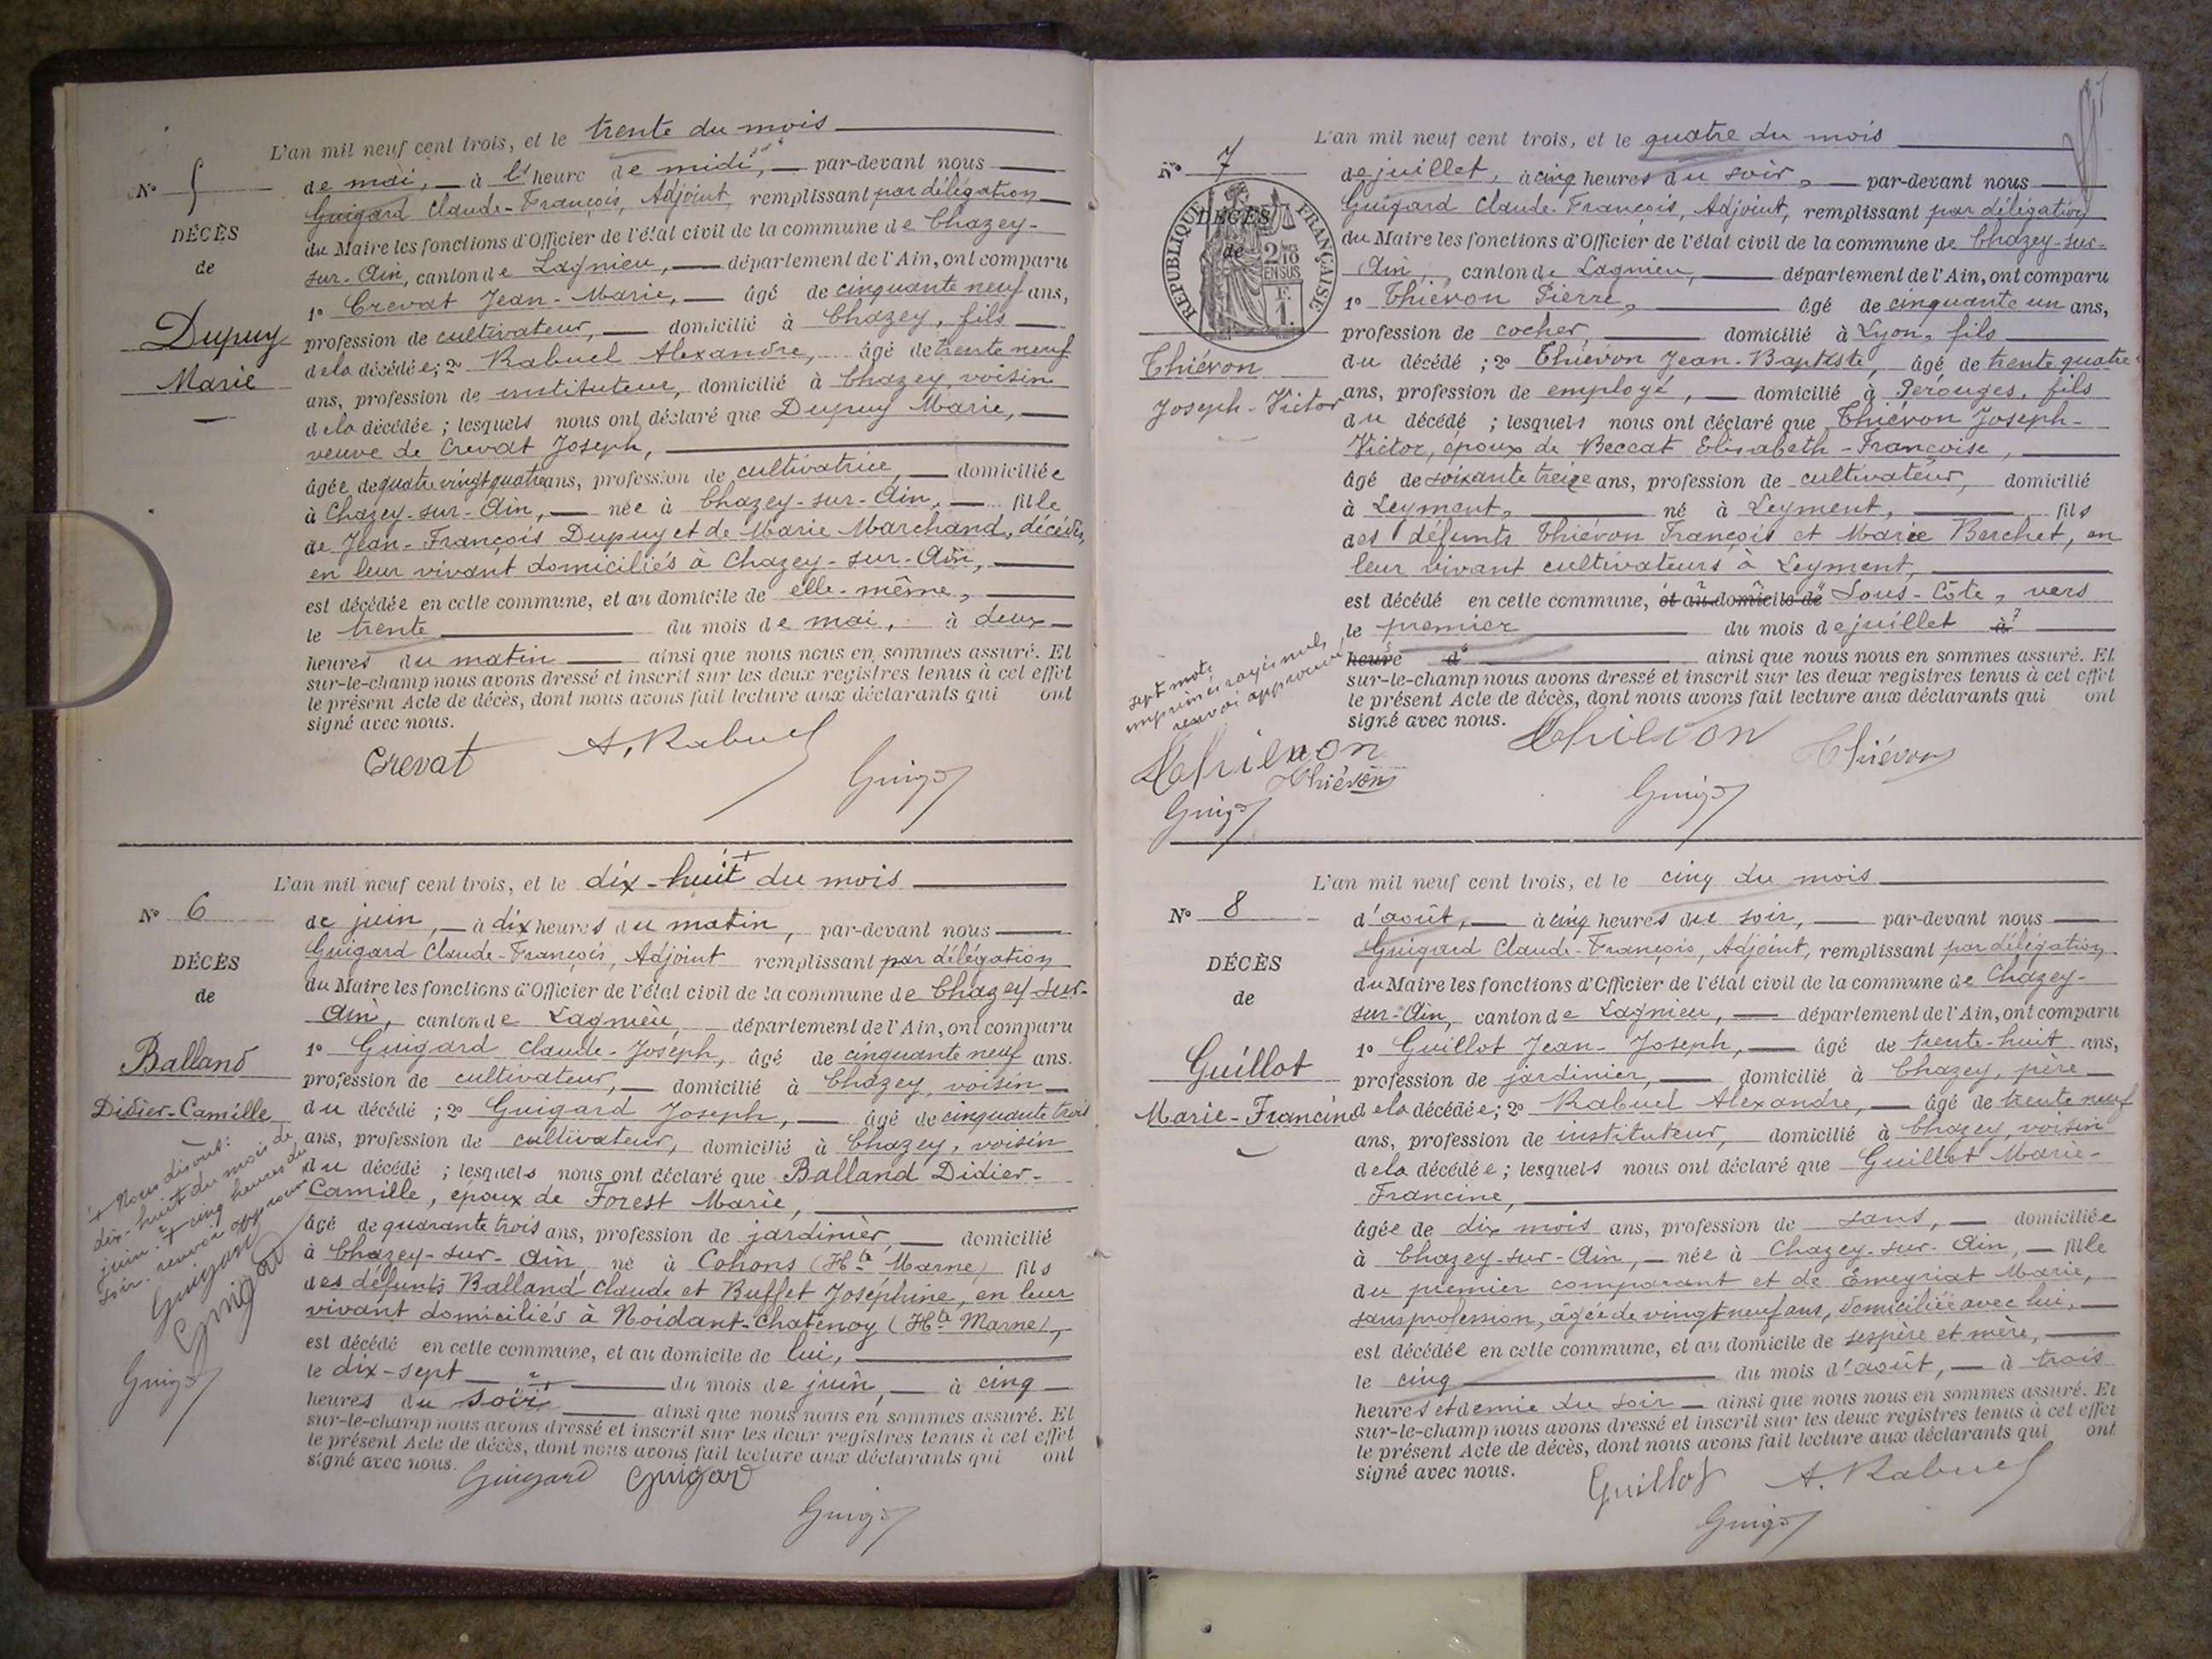 L'an mil neuf cent trois, et le trente du mois
N° 5
de mai, à l' heure de midi, par-devant nous
Guigard Claude-François, Adjoint, remplissant par délégation
DÉCÈS
du Maire les fonctions d'Officier de l'état civil de la commune de Chazey-
de
sur-Ain, canton de Lagnieu, département de l'Ain, ont comparu
1° Crevat Jean-Marie, âgé de cinquante neuf ans,
Dupuy
profession de cultivateur, domicilié à Chazey, fils
Marie
de la décédée; 2° Rabuel Alexandre, âgé de trente neuf
ans, profession de instituteur, domicilié à Chazey, voisin
de la décédée; lesquels nous ont déclaré que Dupuy Marie,
veuve de Crevat Joseph,
âgée de quatre vingt quatre ans, profession de cultivatrice, domiciliée
à Chazey-sur-Ain, née à Chazey-sur-Ain, fille
de Jean-François Dupuy et de Marie Marchand, décédés,
en leur vivant domiciliés à Chazey-sur-Ain,
est décédée en cette commune, et au domicile de elle-même,
le trente du mois de mai, à deux
heures du matin ainsi que nous nous en sommes assuré. Et
sur-le-champ nous avons dressé et inscrit sur les deux registres tenus à cet effet
le présent Acte de décès, dont nous avons fait lecture aux déclarants qui ont
signé avec nous.
Crevat A. Rabuel
Guigd
L'an mil neuf cent trois, et le dix-huit + du mois
N° 6
de juin, à dix heures du matin, par-devant nous
Guigard Claude-François, Adjoint remplissant par délégation
DÉCÈS
du Maire les fonctions d'Officier de l'état civil de la commune de Chazey-sur-
de
Ain, canton de Lagnieu, département de l'Ain, ont comparu
1° Guigard Claude-Joseph, âgé de cinquante neuf ans.
Balland
profession de cultivateur, domicilié à Chazey, voisin
Didier-Camille
du décédé; 2° Guigard Joseph, âgé de cinquante trois
ans, profession de cultivateur, domicilié à Chazey, voisin
du décédé; lesquels nous ont déclaré que Balland Didier-
Camille, époux de Forest Marie,
âgé de quarante trois ans, profession de jardinier, domicilié
à Chazey-sur-Ain, né à Cohons (Hte Marne) fils
des défunts Balland Claude et Buffet Joséphine, en leur
vivant domiciliés à Noidant-Chatenoy (Hte Marne),
est décédé en cette commune, et au domicile de lui,
le dix-sept du mois de juin, à cinq
heures du soir ainsi que nous nous en sommes assuré. Et
sur-le-champ nous avons dressé et inscrit sur les deux registres tenus à cet effet
le présent Acte de décès, dont nous avons fait lecture aux déclarants qui ont
signé avec nous.
Guigard Guigard
Guigd
+ Nous disons:
dix-huit du mois de
juin. + cinq heures du
soir. renvoi approuvé
Guigard
Guigard
Guigd
L'an mil neuf cent trois, et le quatre du mois
N° 7
de juillet, à cinq heures du soir, par-devant nous
Guigard Claude-François, Adjoint, remplissant par délégation
DÉCÈS
de
RÉPUBLIQUE FRANÇAISE
2/10
EN SUS
F.
1.
du Maire les fonctions d'Officier de l'état civil de la commune de Chazey-sur-
Ain, canton de Lagnieu, département de l'Ain, ont comparu
1° Thiévon Pierre, âgé de cinquante un ans,
profession de cocher, domicilié à Lyon, fils
Thiévon
du décédé; 2° Thiévon Jean-Baptiste, âgé de trente quatre
Joseph-Victor
ans, profession de employé, domicilié à Pérouges, fils
du décédé; lesquels nous ont déclaré que Thiévon Joseph-
Victor, époux de Beccat Elisabeth-Françoise,
âgé de soixante treize ans, profession de cultivateur, domicilié
à Leyment, né à Leyment, fils
des défunts Thiévon François et Marie Berchet, en
leur vivant cultivateurs à Leyment,
est décédé en cette commune, et au domicile de Sous-Côte, vers
le premier du mois de juillet à
heure d ainsi que nous nous en sommes assuré. Et
sur-le-champ nous avons dressé et inscrit sur les deux registres tenus à cet effet
le présent Acte de décès, dont nous avons fait lecture aux déclarants qui ont
signé avec nous.
sept mots
imprimés rayés nuls,
renvoi approuvé
Thiévon
Thiévon
Guigd
Thiévon Thiévon
Guigd
L'an mil neuf cent trois, et le cinq du mois
N° 8
d'août, à cinq heures du soir, par-devant nous
Guigard Claude-François, Adjoint, remplissant par délégation
DÉCÈS
du Maire les fonctions d'Officier de l'état civil de la commune de Chazey-
de
sur-Ain, canton de Lagnieu, département de l'Ain, ont comparu
1° Guillot Jean-Joseph, âgé de trente-huit ans,
Guillot
profession de jardinier, domicilié à Chazey, père
Marie-Francine
de la décédée; 2° Rabuel Alexandre, âgé de trente neuf
ans, profession de instituteur, domicilié à Chazey, voisin
de la décédée; lesquels nous ont déclaré que Guillot Marie-
Francine,
âgée de dix mois ans, profession de sans, domiciliée
à Chazey-sur-Ain, née à Chazey-sur-Ain, fille
du premier comparant et de Emeyriat Marie,
sans profession, âgée de vingt neuf ans, domiciliée avec lui,
est décédée en cette commune, et au domicile de ses père et mère,
le cinq du mois d'août, à trois
heures et demie du soir ainsi que nous nous en sommes assuré. Et
sur-le-champ nous avons dressé et inscrit sur les deux registres tenus à cet effet
le présent Acte de décès, dont nous avons fait lecture aux déclarants qui ont
signé avec nous.
Guillot A. Rabuel
Guigd